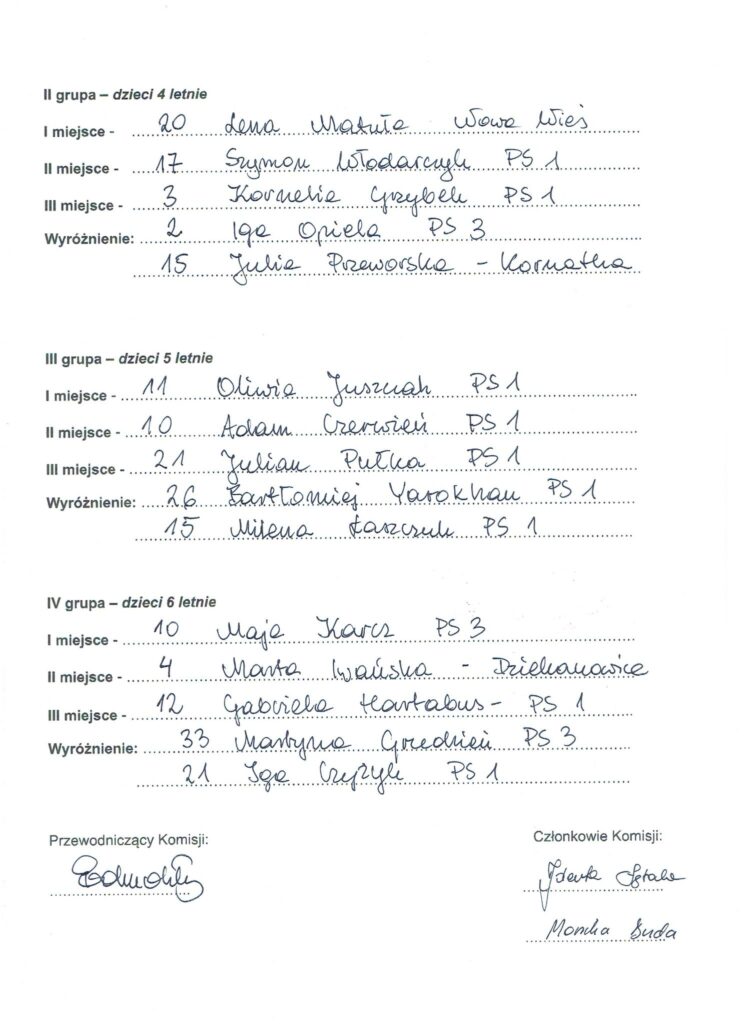 II grupa – dzieci 4 letnie
I miejsce - 20 Lena Matuła Nowa Wieś
II miejsce - 17 Szymon Włodarczyk PS 1
III miejsce - 3 Kornelia Grzybek PS 1
Wyróżnienie: 2 Iga Opiela PS 3
15 Julia Przeworska - Kornatka
III grupa – dzieci 5 letnie
I miejsce - 11 Oliwia PS 1
II miejsce - 10 Adam Czerwień PS 1
III miejsce - 21 Julian Pułka PS 1
Wyróżnienie: 26 Bartłomiej Yarokhan PS 1
15 Milena Łaszczuk PS 1
IV grupa – dzieci 6 letnie
I miejsce - 10 Maja Karcz PS 3
II miejsce - 4 Marta Iwańska - Dziekanowice
III miejsce - 12 Gabriela Hartabus - PS 1
Wyróżnienie: 33 Martyna Grzedzień PS 3
21 Iga Czyżyk PS 1
Przewodniczący Komisji:
Członkowie Komisji:
Monika Duda